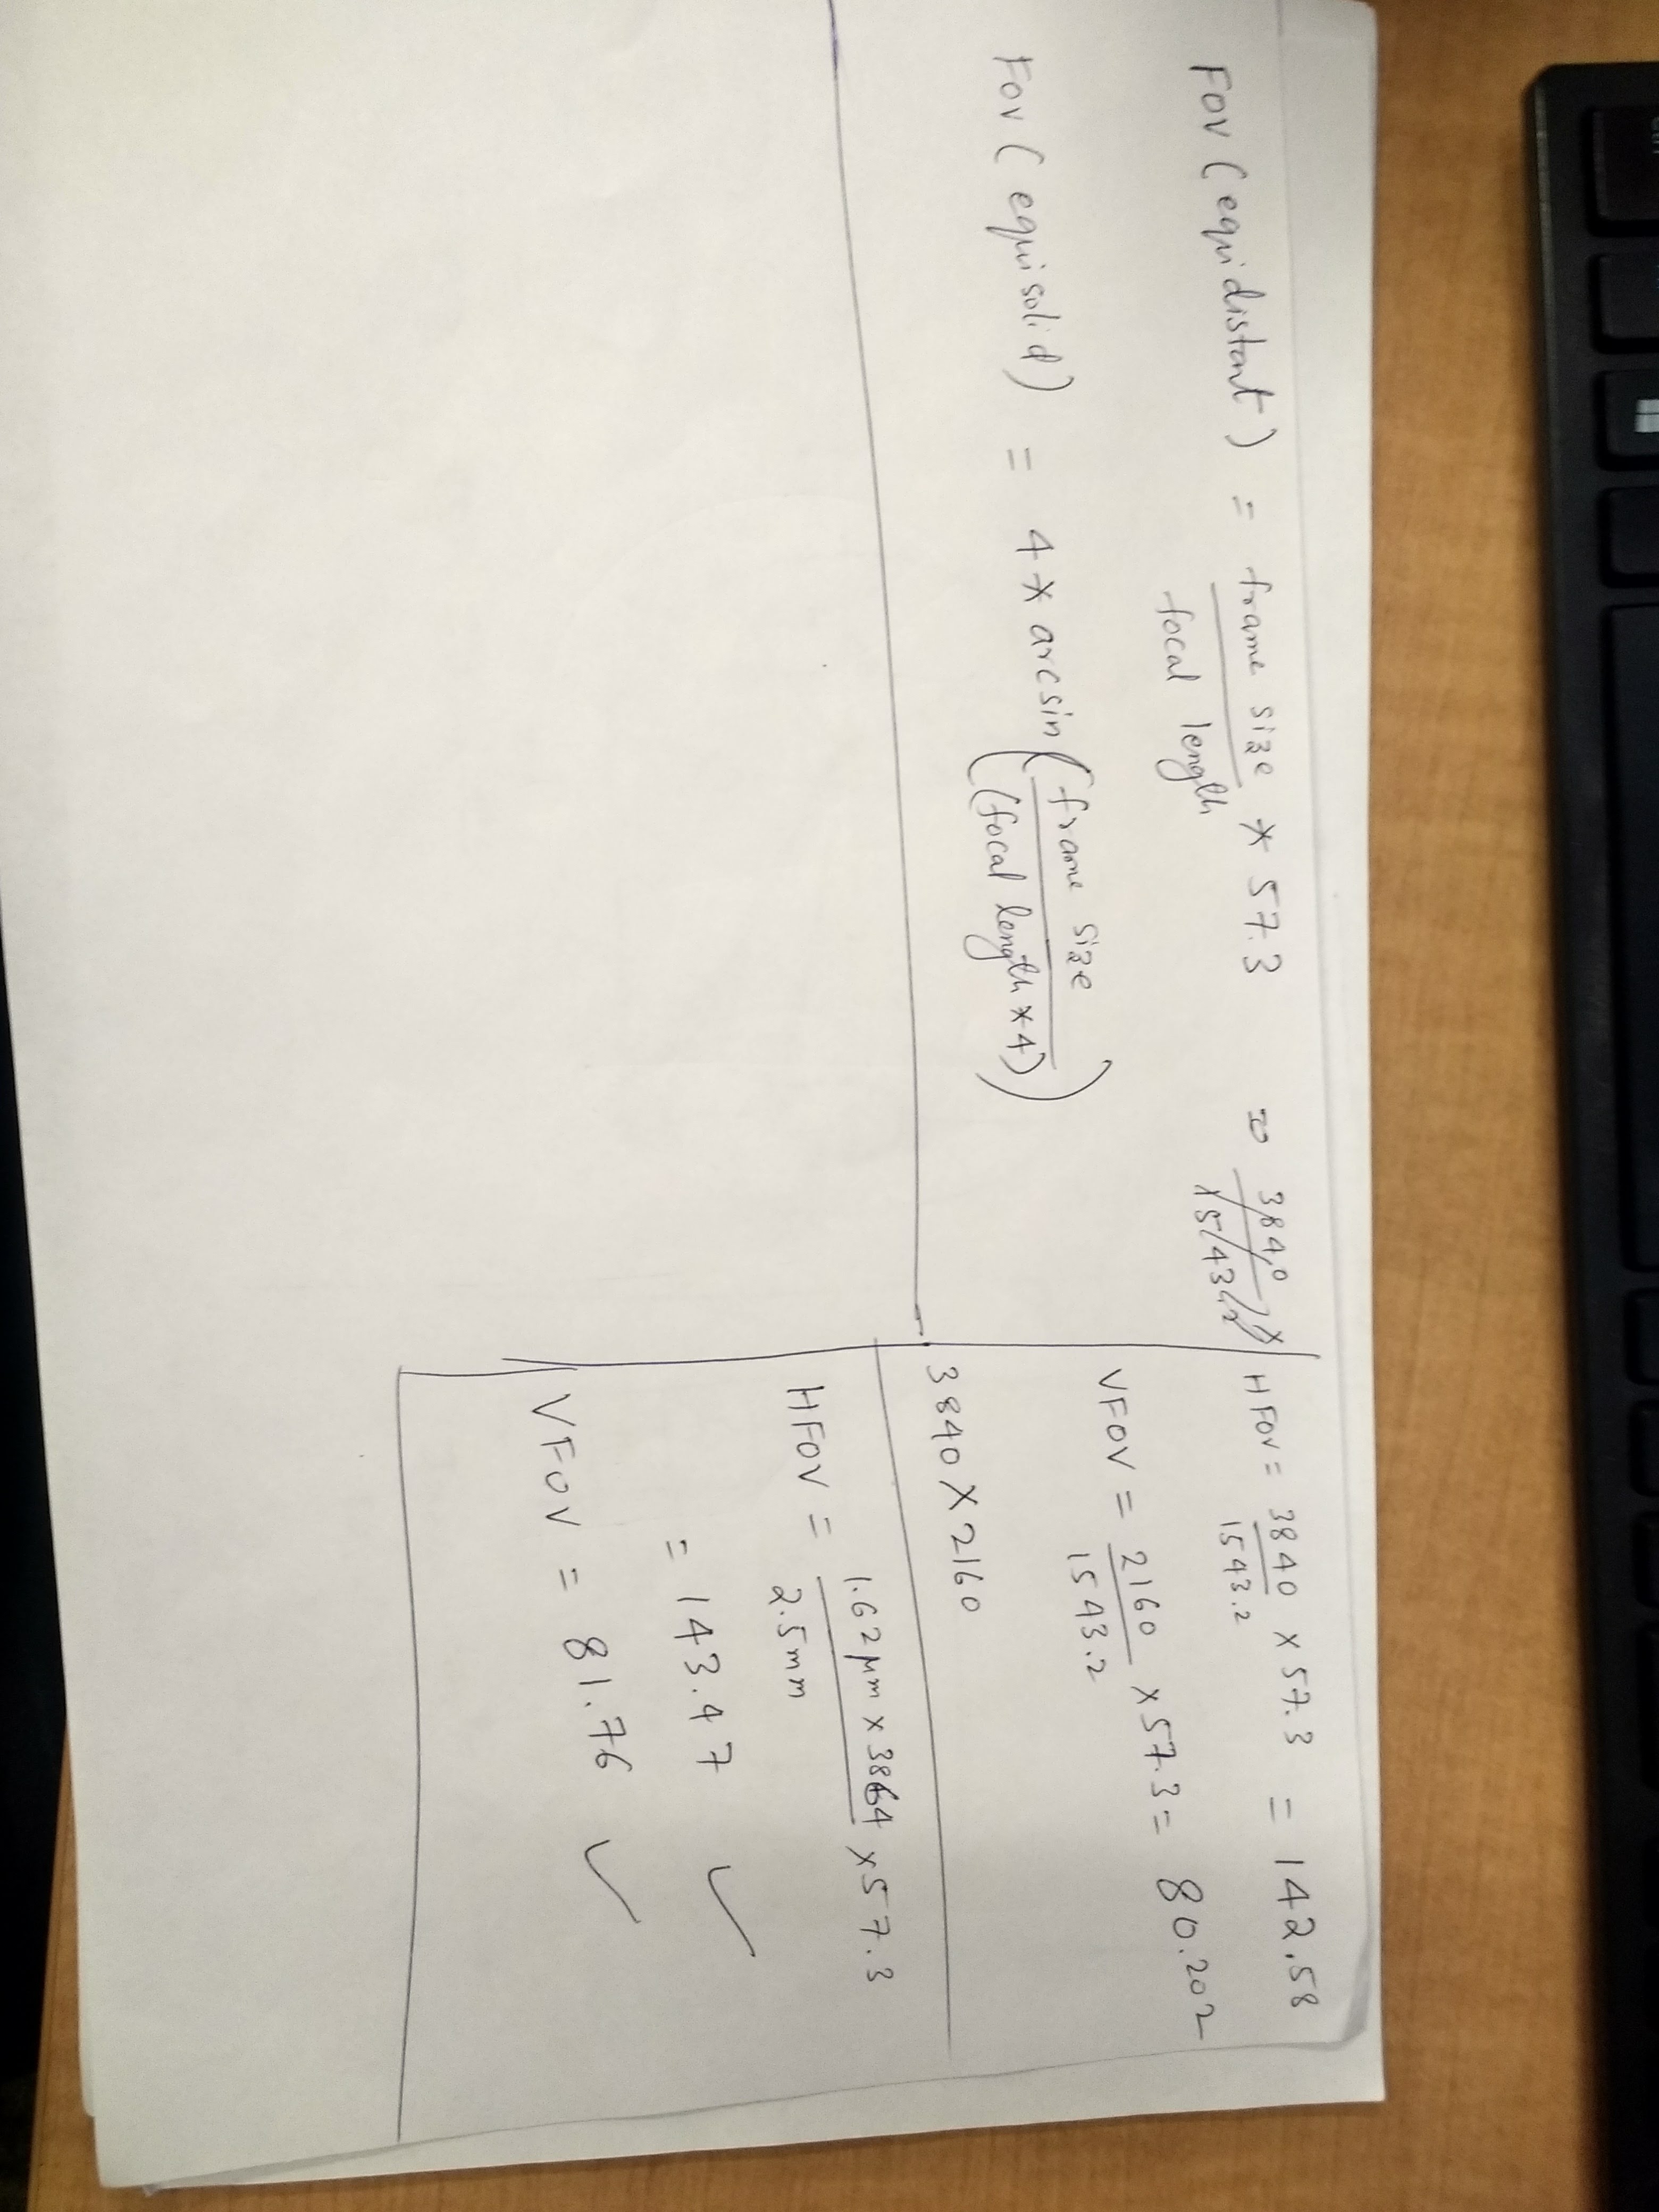 FOV (equidistant) = frame size / focal length * 57.3
FOV (equisolid) = 4 * arcsin (frame size / (focal length * 4))
HFOV = 3840 / 1543.2 × 57.3 = 142.58
VFOV = 2160 / 1543.2 × 57.3 = 80.202
3840 × 2160
HFOV = 1.62 μm × 3864 / 2.5mm × 57.3
= 143.47 ✓
VFOV = 81.76 ✓